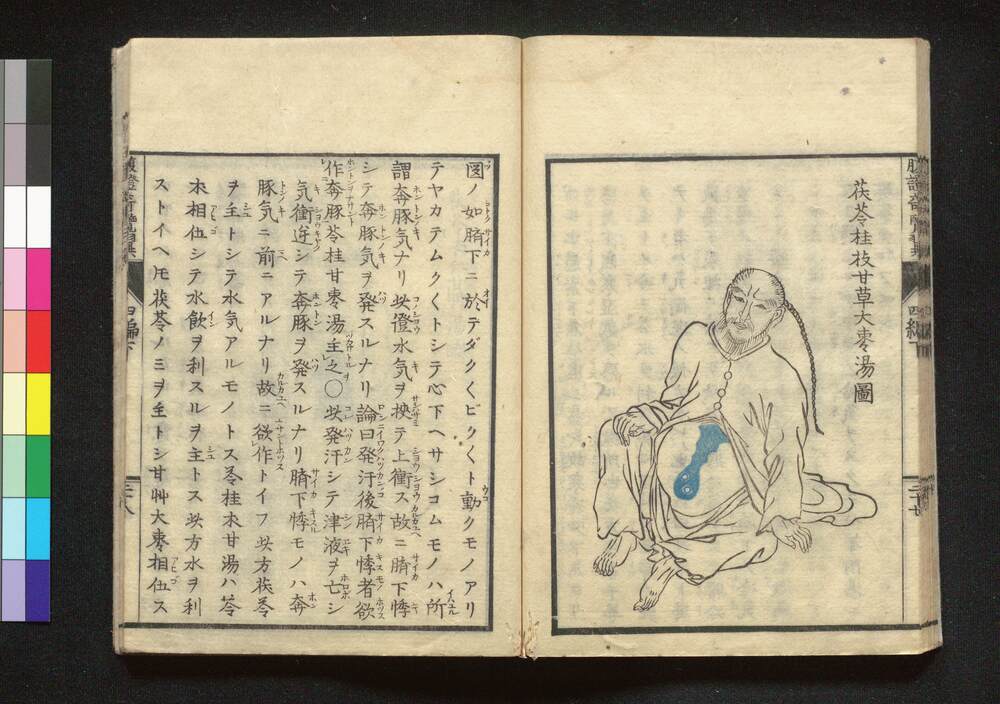 茯苓桂枝甘草大棗湯圖
四編下
図ノ如臍下ニ於テダク〱ビク〱ト動クモノアリ
テヤカテムク〱トシテ心下ヘサシコムモノハ所
謂奔豚気ナリ此證水気ヲ挾テ上衝ス故ニ臍下悸
シテ奔豚気ヲ発スルナリ論曰発汗後臍下悸者欲
作奔豚苓桂甘棗湯主之〇此発汗シテ津液ヲ亡シ
気衝逆シテ奔豚ヲ発スルナリ臍下悸モノハ奔
豚気ニ前ニアルナリ故ニ欲作トイフ此方茯苓
ヲ主トシテ水気アルモノトス苓桂朮甘湯ハ苓
朮相伍シテ水飲ヲ利スルヲ主トス此方水ヲ利
ストイヘ𪜈茯苓ノミヲ主トシ甘艸大棗相伍ス
四編下